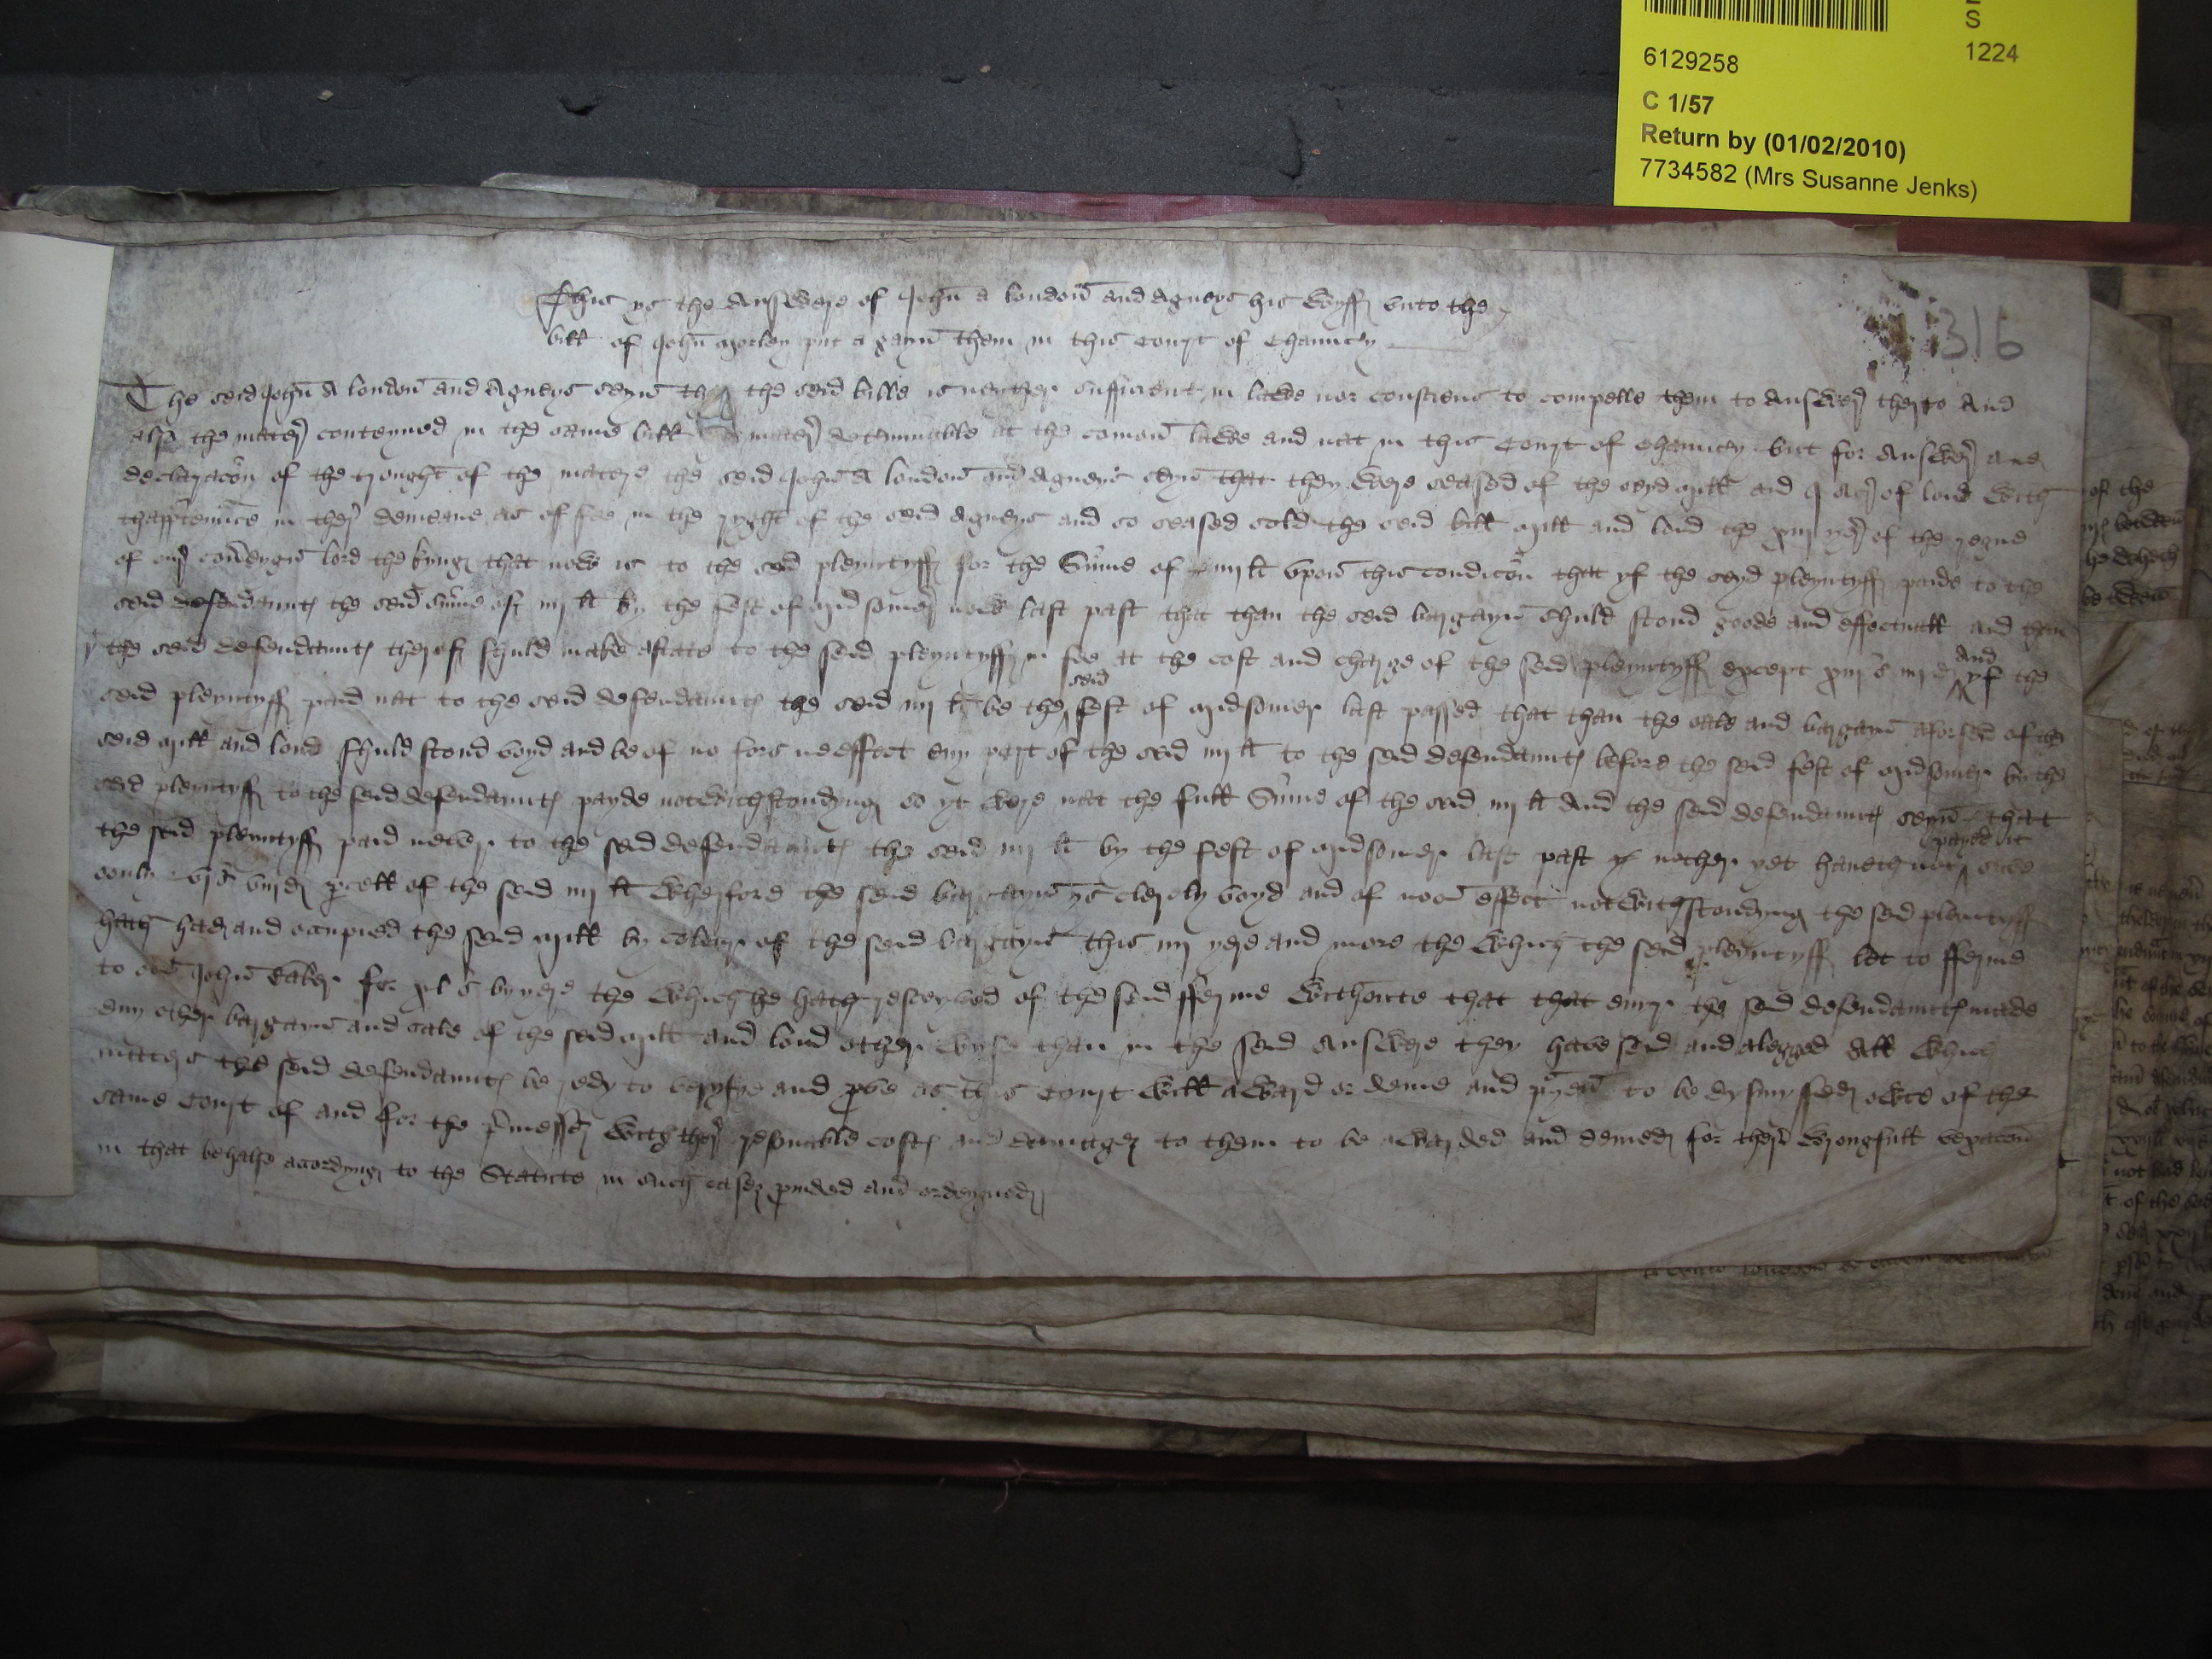 S
1224
6129258
C 1/57
Return by (01/02/2010)
7734582 (Mrs Susanne Jenks)
316
This ys the Answere of John a london and Agneys his wyff vnto the
bill of John Morley put a gayn them in this Court of Chauncery
The seid John A london and Agneys seyn the seid bille is nether sufficient in lawe nor consciens to compelle them to Answer therto And
also the mater conteyned in the same bill mater determinable at the comon lawe and nat in this Court of Chauncery but for Answer and
declaracon of the trought of the matere the seid John A london and Agneys seyn that they were seased of the seyd Mill and j acr of lond with
in ther demeane as of fee in the ryght of the seid Agneys and so seased sold the seid bill Mill and lond the xiij yer of the regne
of our soveryn lord the kyng that now is to the seid pleyntyff for the Sume of iiij li vpon this condicon that yf the seyd pleyntyff paide to the
seid defendauntes the seid sume of iiij li by the fest of Midsomer now last past that than the seid bargayn shuld stond goode and effectuall and than
the seid defendauntes therof shuld make astate to the seid pleyntyff in fee at the cost and charge of the seid pleyntyff except xiij s iiij d and yf the
seid pleyntyff paid nat to the seid defendauntes the seid iiij li be the seid fest of Midsomer last passed that than the sale and bargan aforseid of the
seid Mill and lond shuld stond voyd and be of no fors ne effect eny part of the seid iiij li to the seid defendauntes before the seid fest of Midsomer by the
seid pleyntyff to the seid defendauntes payde notwithstondyng so yt were nat the full Sume of the seid iiij li And the seid defendauntes seyn that
the seid pleyntyff paid never to the seid defendauntes the seid iiij li by the fest of Midsomer last past nother yet haveth not payed it
only vj s viij d parcell of the seid iiij li Wherfore the seid bargayn ys clerely voyd and of non effect notwithstondyng the seid pleyntyff
hath had and occupied the seid Mill by colour of the seid bargayn this iiij yere and more the which the seid pleyntyff let to fferme
to one John Baker for xl s by yere the which he hath resceyved of the seid fferme Withoute that that ever the seid defendauntes made
eny other bargane and sale of the seid Mill and lond other wyse than in the seid Answere they have seid and alegged All which
maters the seid defendauntes be redy to veryfye and prove as this Court will award or deme and preyen to be dysmyssed owte of the
same Court of and for the premesses with ther resonable costes and damages to them to be awarded and demed for ther wrongfull vexacon
in that behalfe acordyng to the Statute in such case provided and ordeyned